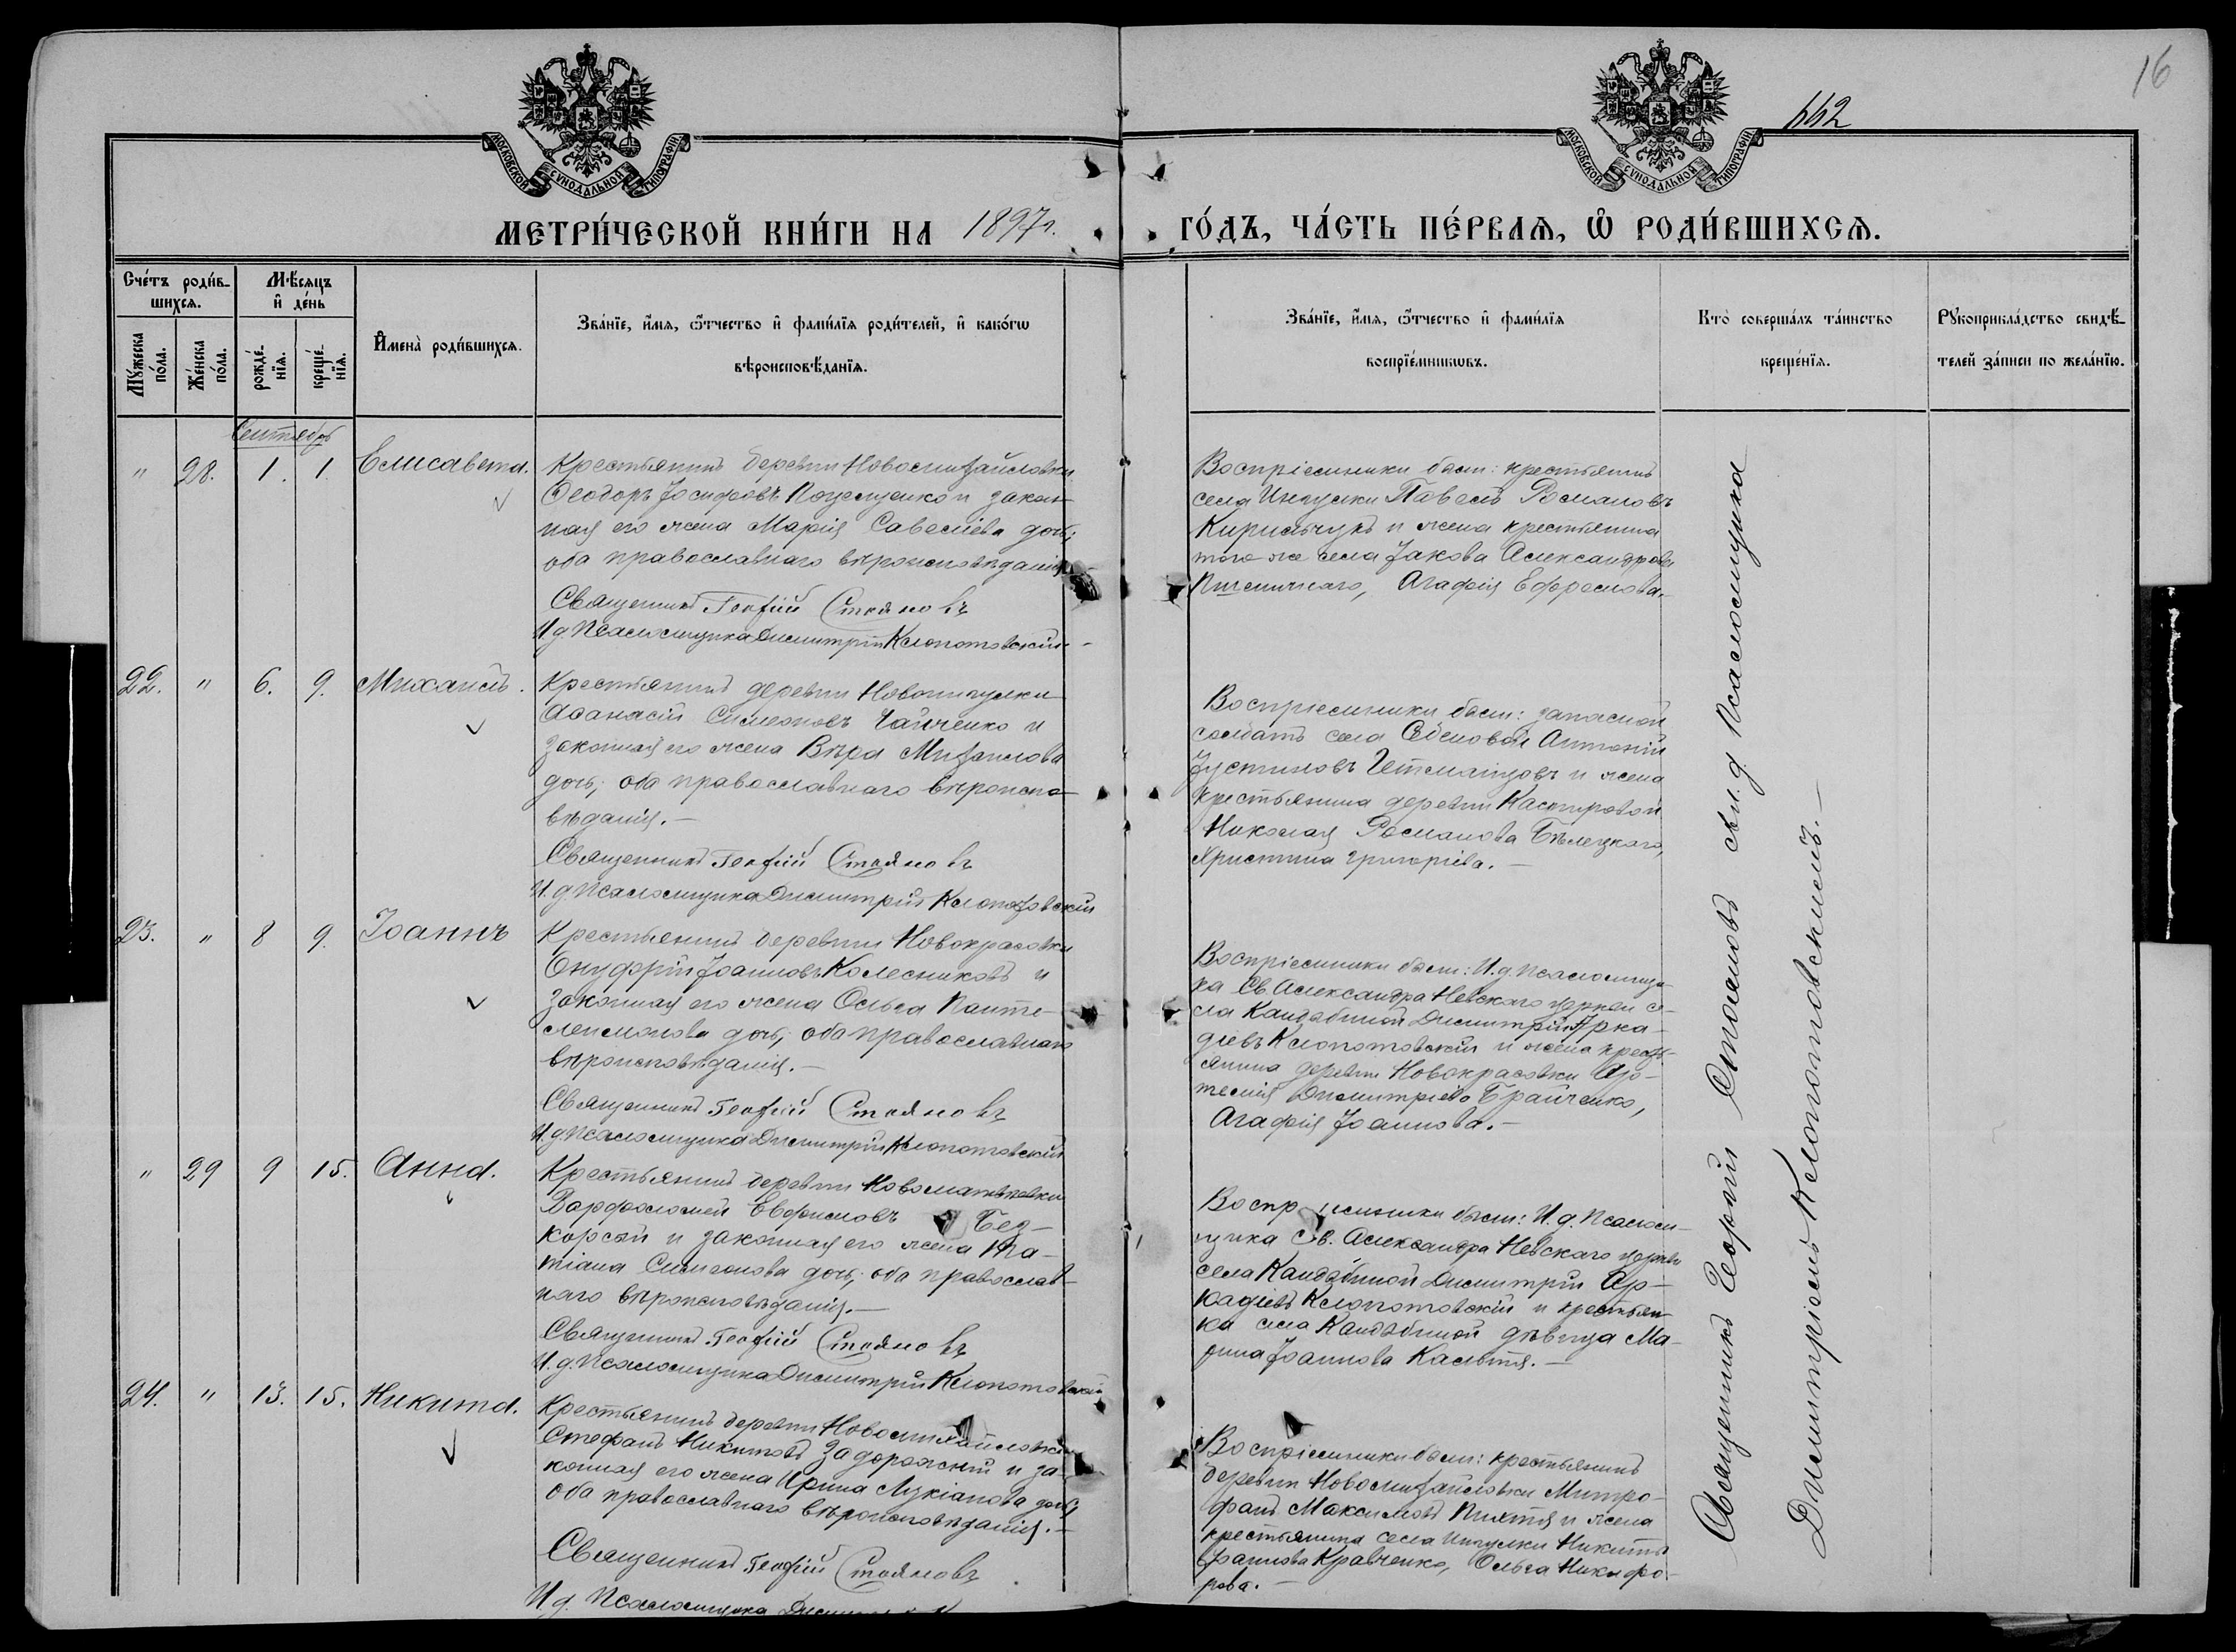 16
662
МОСКОВСКОЙ СУНОДАЛЬНОЙ ТИПОГРАФІИ
МОСКОВСКОЙ СУНОДАЛЬНОЙ ТИПОГРАФІИ
МЕТРИ́ЧЕСКОЙ КНИ́ГИ НА 1897г.
ГО́ДЪ, ЧА́СТЬ ПЕ́РВАѦ, Ѡ҆ РОДИ́ВШИХСѦ.
Сче́тъ роди́в-
шихсѧ.
Мѣ́сяцъ
и҆ де́нь
Мꙋ́жеска
по́ла.
Же́нска
по́ла.
рожде́-
нїѧ.
креще́-
нїѧ.
И҆мена̀ роди́вшихсѧ.
Зва́нїе, и҆́мѧ, ѻ҆́тчество и҆ фами́лїѧ роди́телей, и҆ како́гѡ
вѣроисповѣ́данїѧ.
Зва́нїе, и҆́мѧ, ѻ҆́тчество и҆ фами́лїѧ
воспрїе́мникѡвъ.
Кто̀ соверша́лъ та́инство
креще́нїѧ.
Рꙋкоприкла́дство свидѣ́-
телей за́писи по жела́нїю.
Сентябрь
" 28. 1. 1. Елисавета.
Крестьянинъ деревни Новомихайловки
Ѳеодоръ Іосифовъ и закон-
ная его жена Марія Савеліева дочь;
оба православнаго вѣроисповѣданія
Священникъ Георгій Стояновъ
И.д. Псаломщика Димитрій Клопотовскій
Воспріемники были: крестьянинъ
села Ингулки Павелъ Романовъ
Кирильчукъ и жена крестьянина
того же села Іакова Александрова
Пшеничнаго, Агафія Ефремова.
22. " 6. 9. Михаилъ.
Крестьянинъ деревни Новоингулки
Аѳанасій Симеоновъ Чайченко и
законная его жена Вѣра Михаилова
дочь; оба православнаго вѣроиспо-
вѣданія. —
Священникъ Георгій Стояновъ
И.д. Псаломщика Димитрій Клопотовскій
Воспріемники были: запасной
солдатъ села Антоній
Іустиновъ и жена
крестьянина деревни Касперовой
Николая Романова Бѣлецкаго,
Христина Григоріева. —
23. " 8 9. Іоаннъ
Крестьянинъ деревни Новокрасовки
Онуфрій Іоанновъ Колесниковъ и
законная его жена Ольга Панте-
леимонова дочь; оба православнаго
вѣроисповѣданія. —
Священникъ Георгій Стояновъ
И.д. Псаломщика Димитрій Клопотовскій
Воспріемники были: И.д. псаломщи-
ка Св. Александра Невскаго церкви се-
ла Кандыбиной Димитрій Арка-
діевъ Клопотовскій и жена кресть-
янина деревни Новокрасовки Ар-
темія Димитріева Брайченко,
Агафія Іоаннова. —
" 29 9 15. Анна.
Крестьянинъ деревни Новоматвѣевки
Варфоломей Евфимовъ Без-
корсый и законная его жена Та-
тіана Симеонова дочь; оба православ-
наго вѣроисповѣданія. —
Священникъ Георгій Стояновъ
И.д. Псаломщика Димитрій Клопотовскій
Воспріемники были: И.д. Псалом-
щика Св. Александра Невскаго церкви
села Кандыбиной Димитрій Ар-
кадіевъ Клопотовскій и крестьян-
ка села Кандыбиной дѣвица Ма-
рина Іоаннова
24. " 13. 15. Никита.
Крестьянинъ деревни Новомихайловки
Стефанъ Никитовъ Задорожній и за-
конная его жена Ирина Лукіанова дочь;
оба православнаго вѣроисповѣданія. —
Священникъ Георгій Стояновъ
И.д. Псаломщика
Воспріемники были: крестьянинъ
деревни Новомихайловки Митро-
фанъ Максимовъ и жена
крестьянина села Ингулки Никиты
Кравченко, Ольга Никифо-
рова. —
Священникъ Георгій Стояновъ съ и.д. Псаломщика
Димитріемъ Клопотовскимъ. —